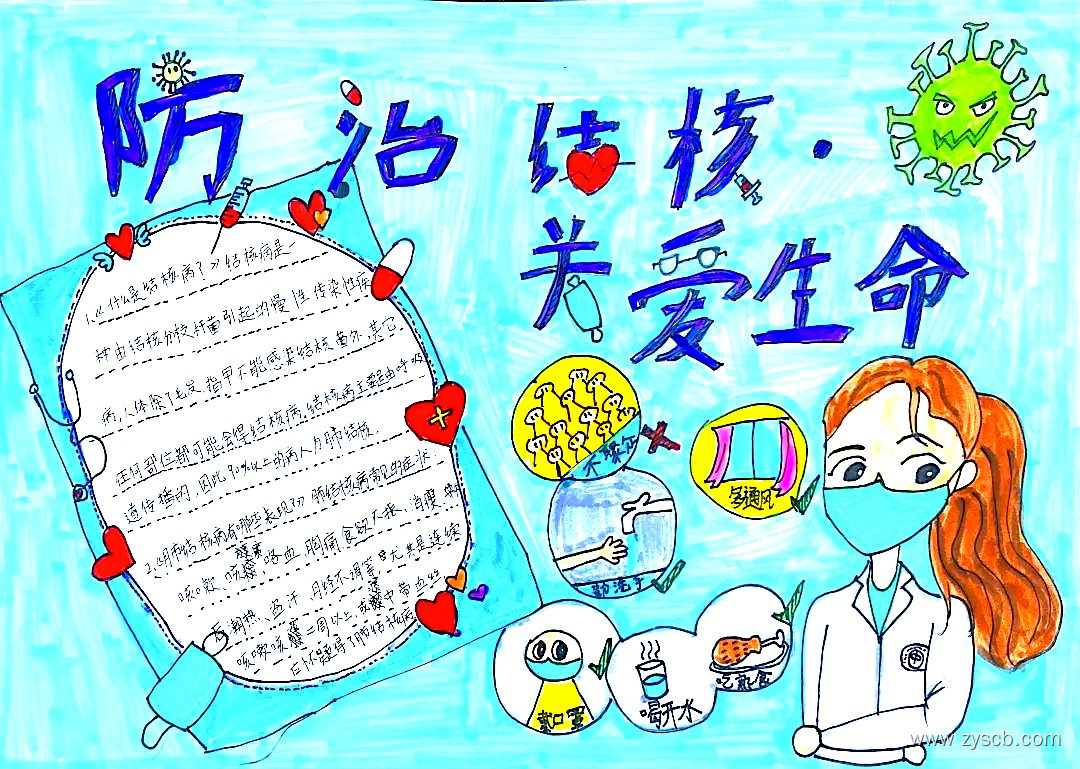 防治结核·
关爱生命
1.《什么是结核病?》结核病是一
种由结核分枝杆菌引起的慢性传染性疾
病,人体除了毛发,指甲不能感染结核菌外,其它
任何部位都可能会得结核病,结核病主要是由呼吸
道传播的,因此90%以上的病人为肺结核。
2.《肺结核病有哪些表现?》肺结核病常见的症状
咳嗽、咳痰、咯血、胸痛、食欲不振、消瘦
午后潮热、盗汗、月经不调等,尤其是连续
咳嗽咳痰二周以上或痰中带血丝
应怀疑得了肺结核病
不聚集
多通风
勤洗手
戴口罩
喝开水
吃熟食
www.zyscb.com